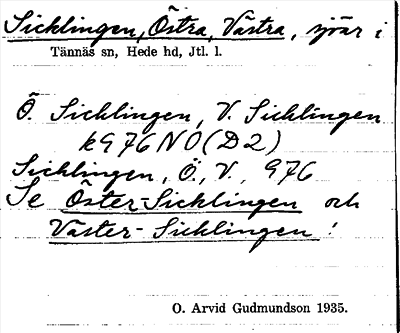 Sicklingen, Östra, Västra, sjöar i
Tännäs sn, Hede hd, Jtl. l.
Ö. Sicklingen, V. Sicklingen
k976NO(D2)
Sicklingen, Ö., V., 976
Se Öster-Sicklingen och
Väster-Sicklingen!
O. Arvid Gudmundson 1935.